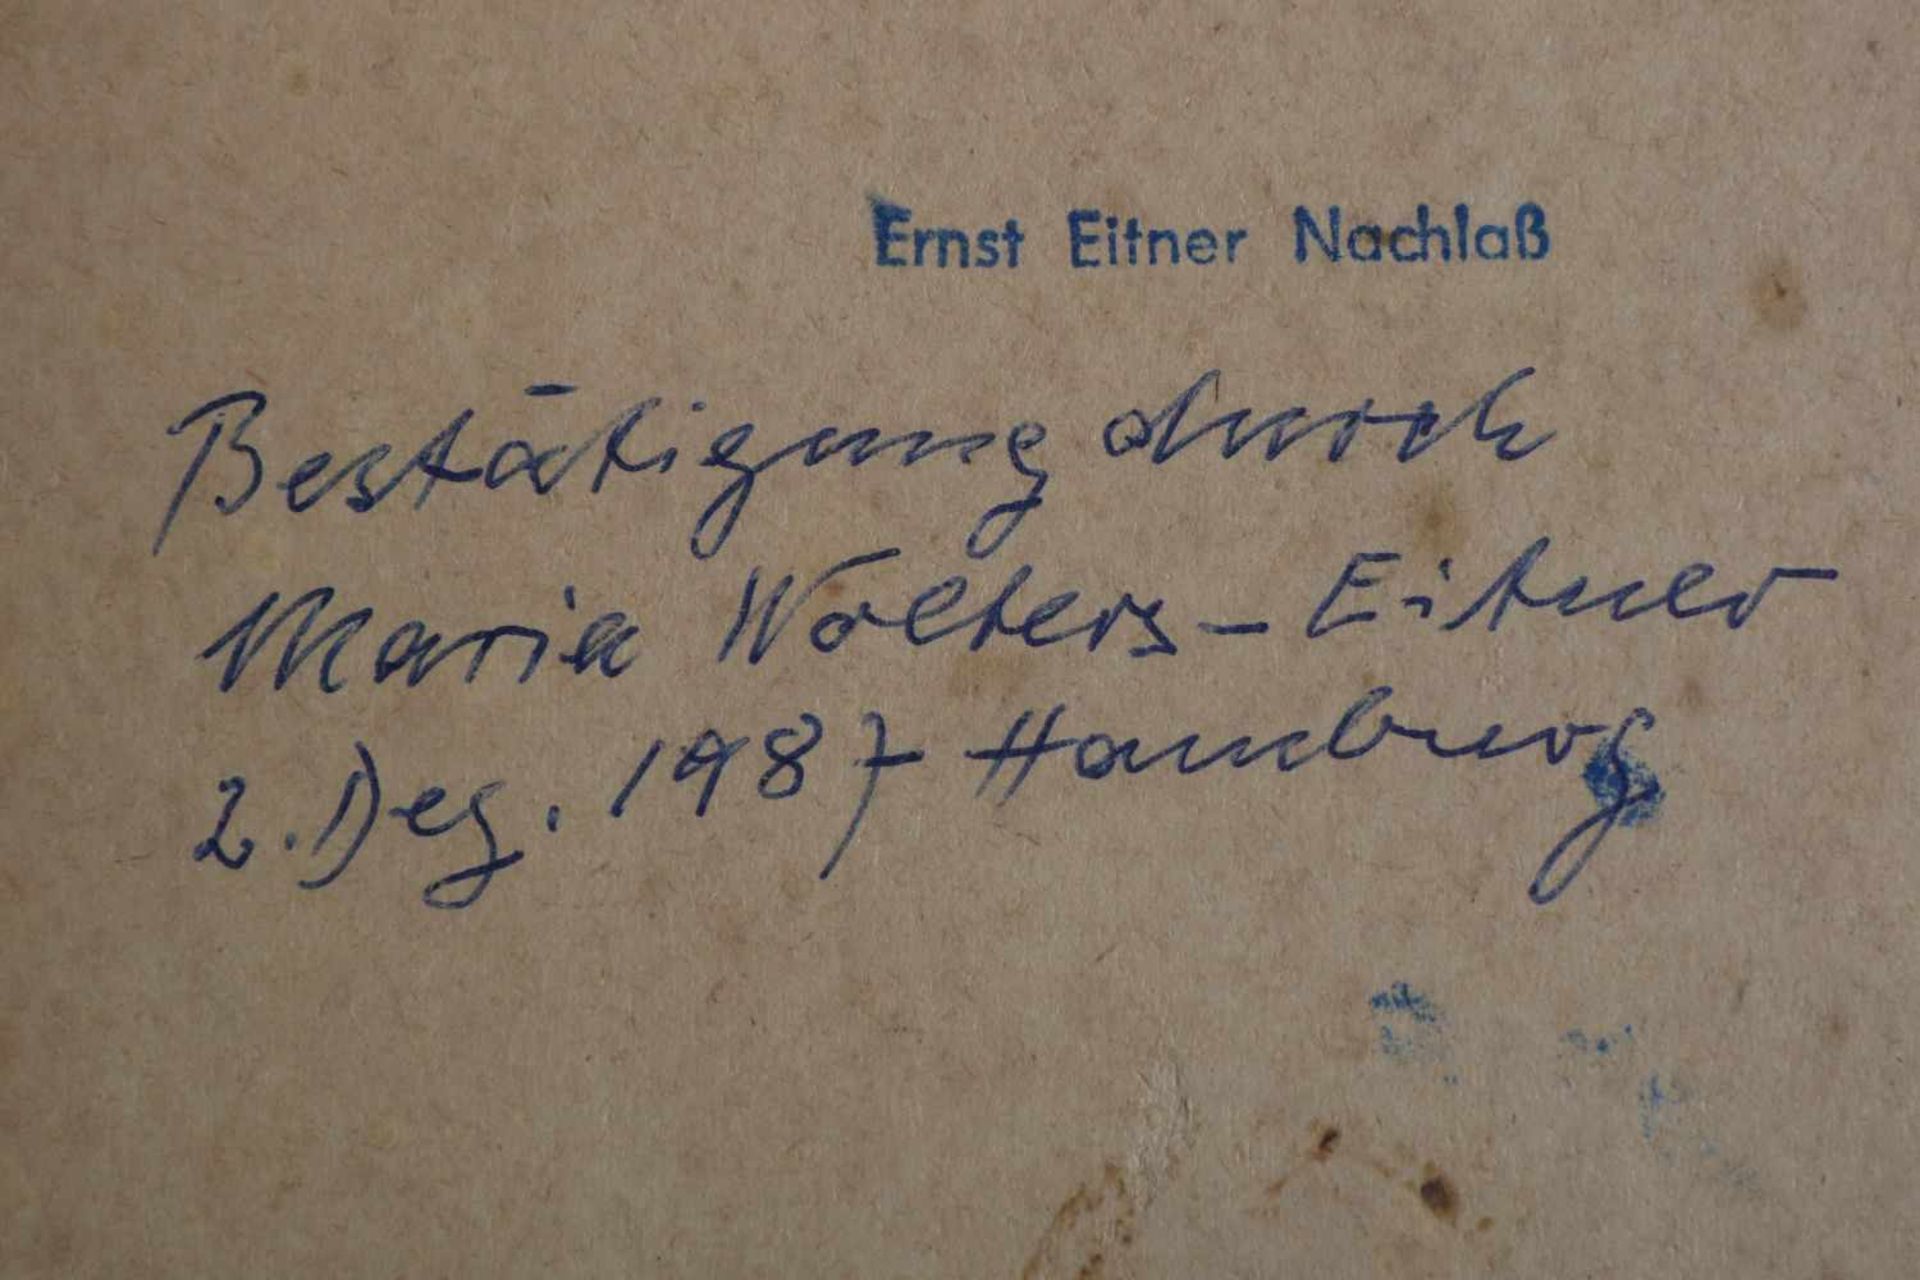 Ernst Eitner Nachlaß
Bestätigung durch
Maria Wolters - Eitner
2. Dez. 1987 Hamburg